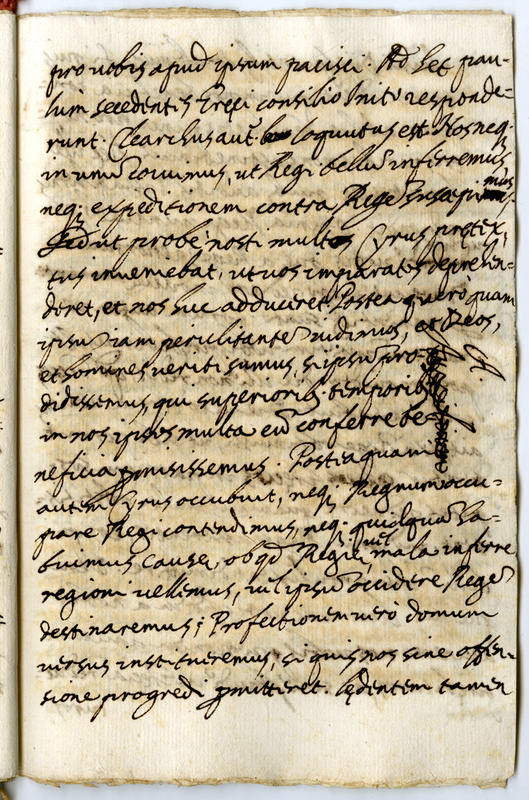 pro vobis apud ipsum pacisci. Ad hec pau-
lum secedentis Greci consilio Inito responde-
runt. Clearchus aut loquutus est. Nos neq.
in unu coivimus, ut Regi bellu inferremus
neq. expeditionem contra Rege suscepimus
Sed ut probe nosti multos Cyrus pretex-
tus inveniebat, ut vos imparatos deprehen-
deret, et nos huc adduceret. Postea vero quam
ipsu iam periclitante vidimus, et Deos,
et homines veriti sumus, si ipsu pro-
didissemus, qui superiorib. temporib
in nos ipsos multa eu conferre be-
neficia pmisissemus. Postea quam
autem Cyrus occubuit, neq. Regnum occu-
pare Regi contendimus, neq. quicqua ha-
buimus cause, ob qd Regie vel mala inferre
regioni vellemus, vel ipsu occidere Rege
destinaremus; Profectionem vero domum
versus institueremus, si quis nos sine offen-
sione progredi pmitteret. Ledentem tamen